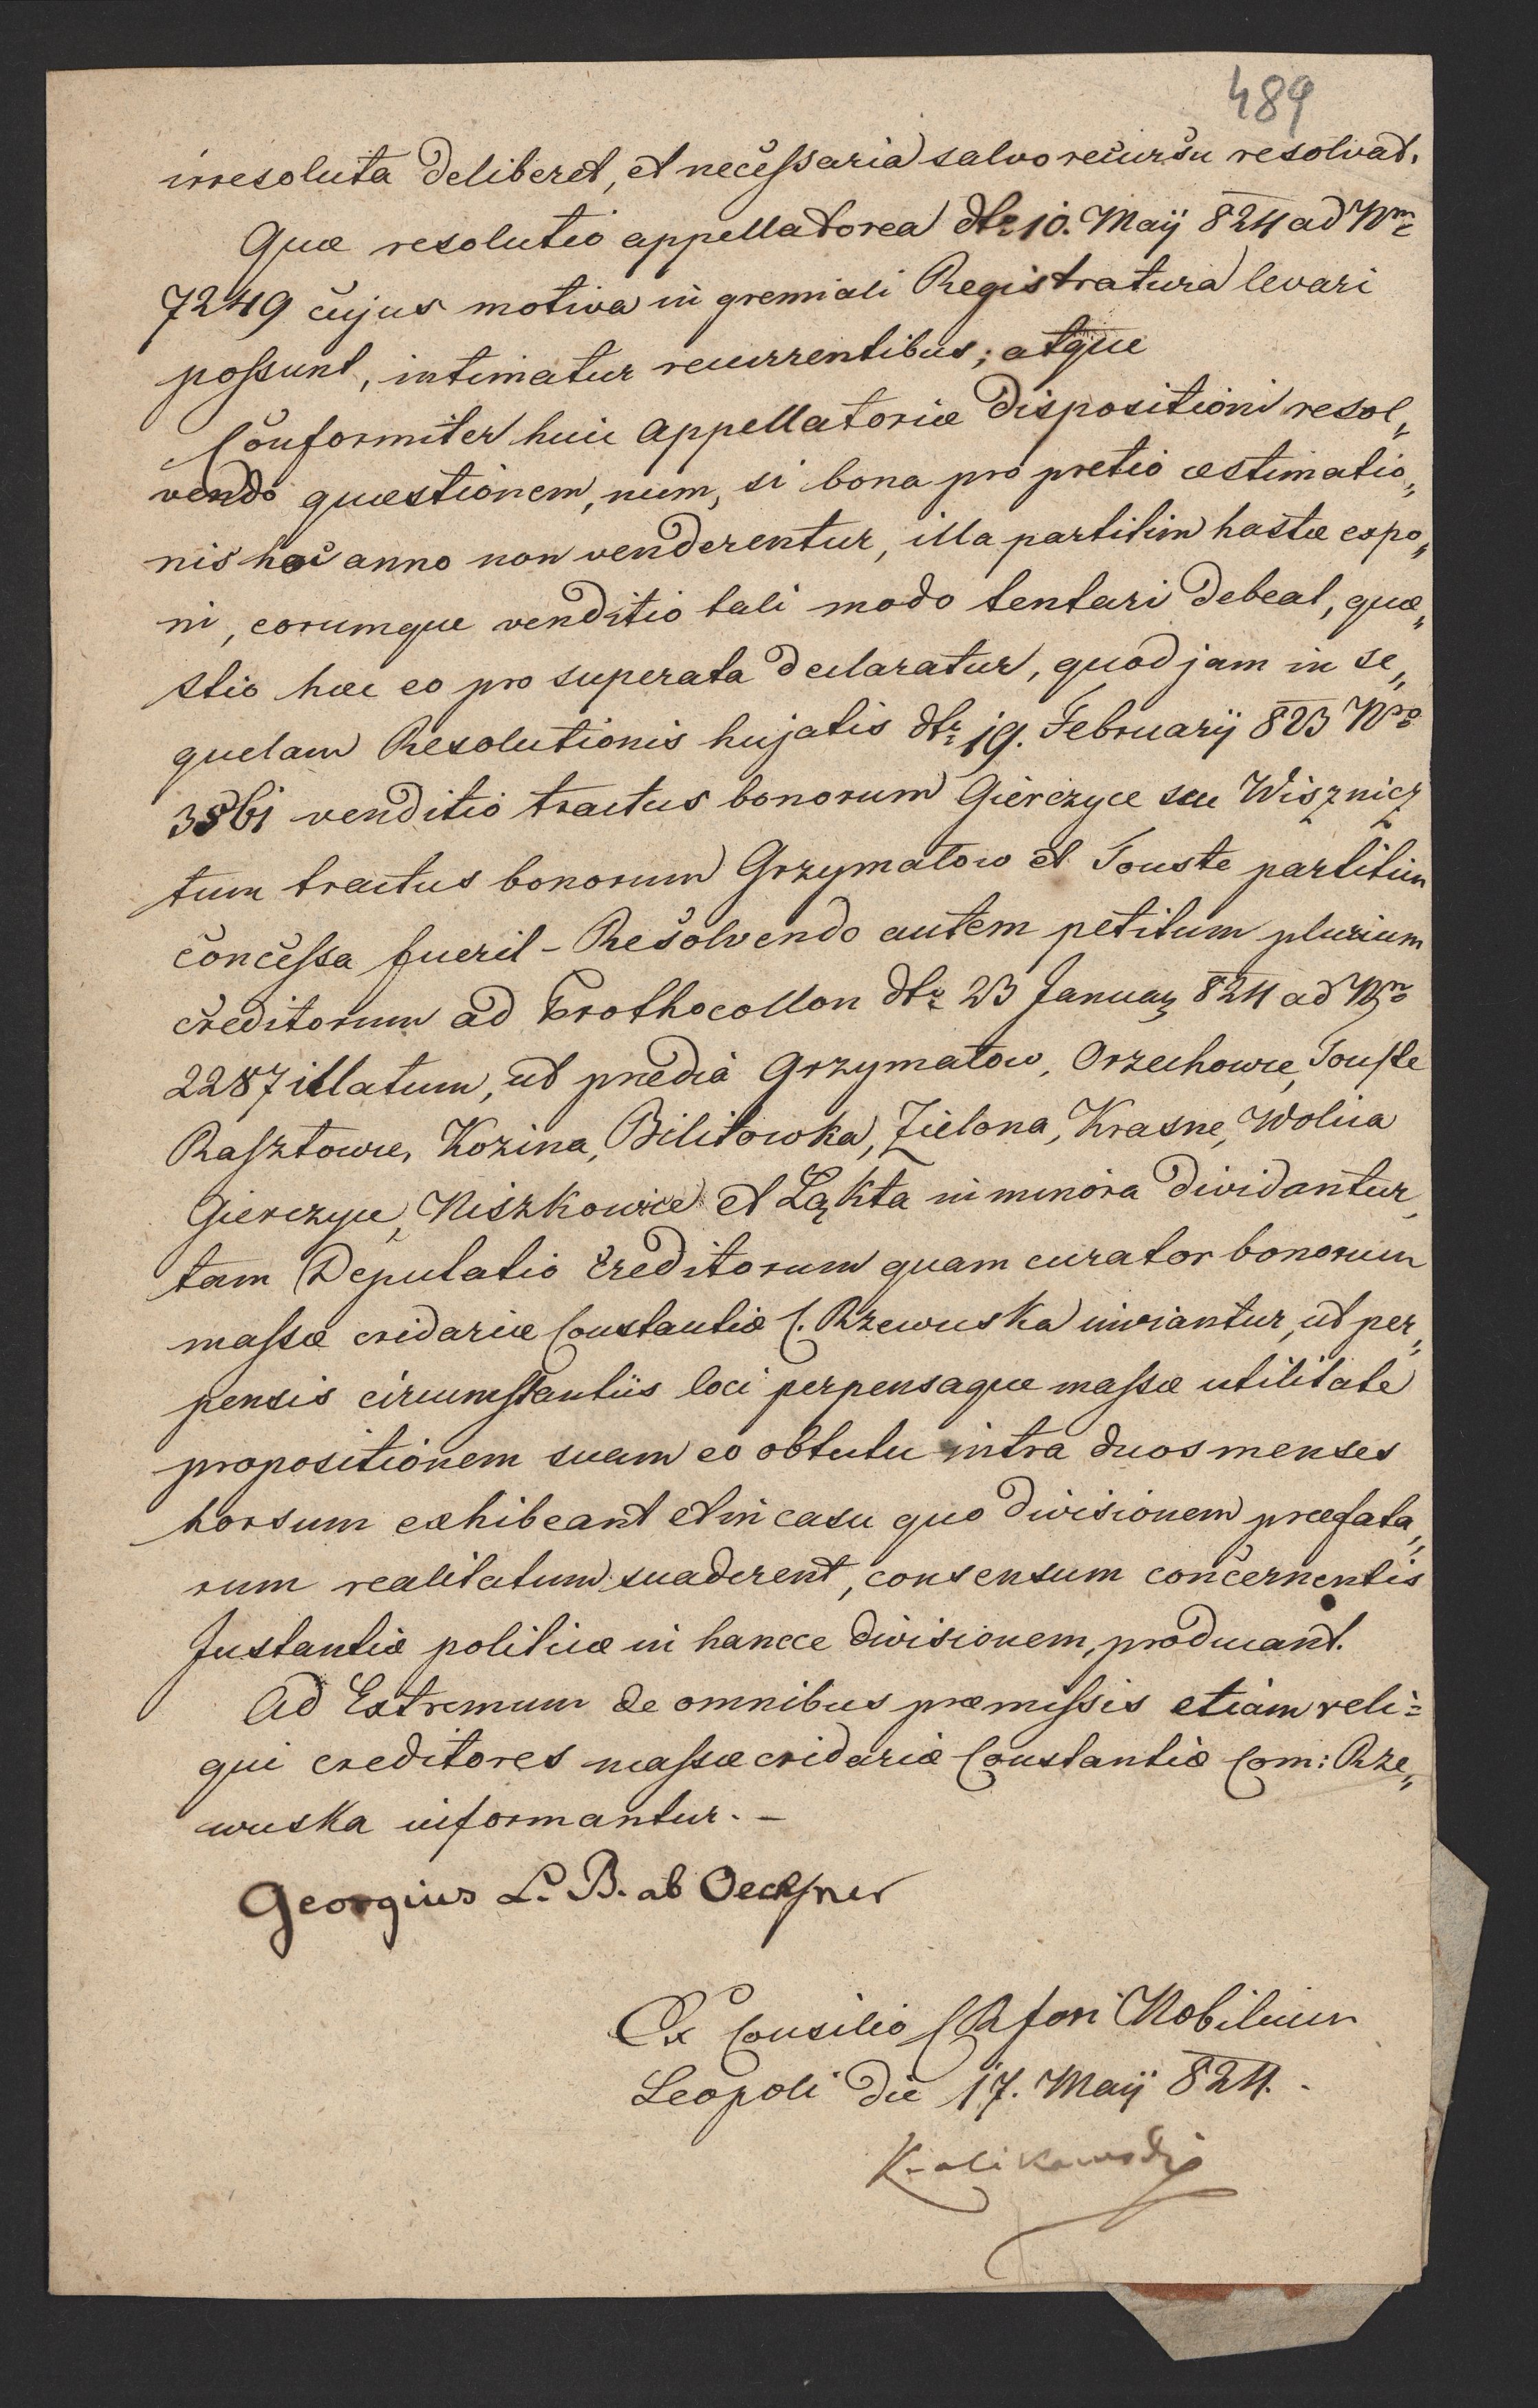 489
irresoluta deliberet, et necessaria salvo recursu resolvat.
Quæ resolutio appellatorea dto 10. Maij 824 ad Nrm
7249 cujus motiva in gremiali Registratura levari
possunt, intimatur recurrentibus; atque
Conformiter huic appellatoriæ dispositioni resol„
vendo quæstionem, num, si bona pro pretio æstimatio„
nis hoc anno non venderentur, illa partitim hastæ expo„
ni, eorumque venditio tali modo tentari debeat, quæ„
stio hæc eo pro superata declaratur, quod jam in se„
quelam Resolutionis hujatis dto 19. Februarij 823 Nro
3861 venditio tractus bonorum Gierczyce seu Wisznicz
tum tractus bonorum Grzymałow et Touste partitim
concessa fuerit – Resolvendo autem petitum plurium
creditorum ad Prothocollon dto 23 Januar 824 ad Nro
2287 illatum, ut prædia Grzymałow, Orzechowce, Touste
Rasztowce, Kozina, Bilitowka, Zielona, Krasne, Wolica
Gierczyce, Niszkowice et Łąkta in minora dividantur,
tam Deputatio Creditorum quam curator bonorum
massæ cridariæ Constantiæ C. Rzewuska inviantur, ut per„
pensis circumstantiis loci perpensaque massæ utilitate
propositionem suam eo obtutu intra duos menses
horsum exhibeant et in casu quo divisionem præfata„
rum realitatum suaderent, consensum concernentis
Instantiæ politicæ in hancce divisionem, producant.
Ad Extremum de omnibus præmissis etiam reli=
qui creditores massæ cridariæ Constantiæ Com: Rze„
wuska informantur. –
Georgius L. B. ab Oechsner
Ex Consilio CR fori Nobilium
Leopoli die 17. Maij 824.